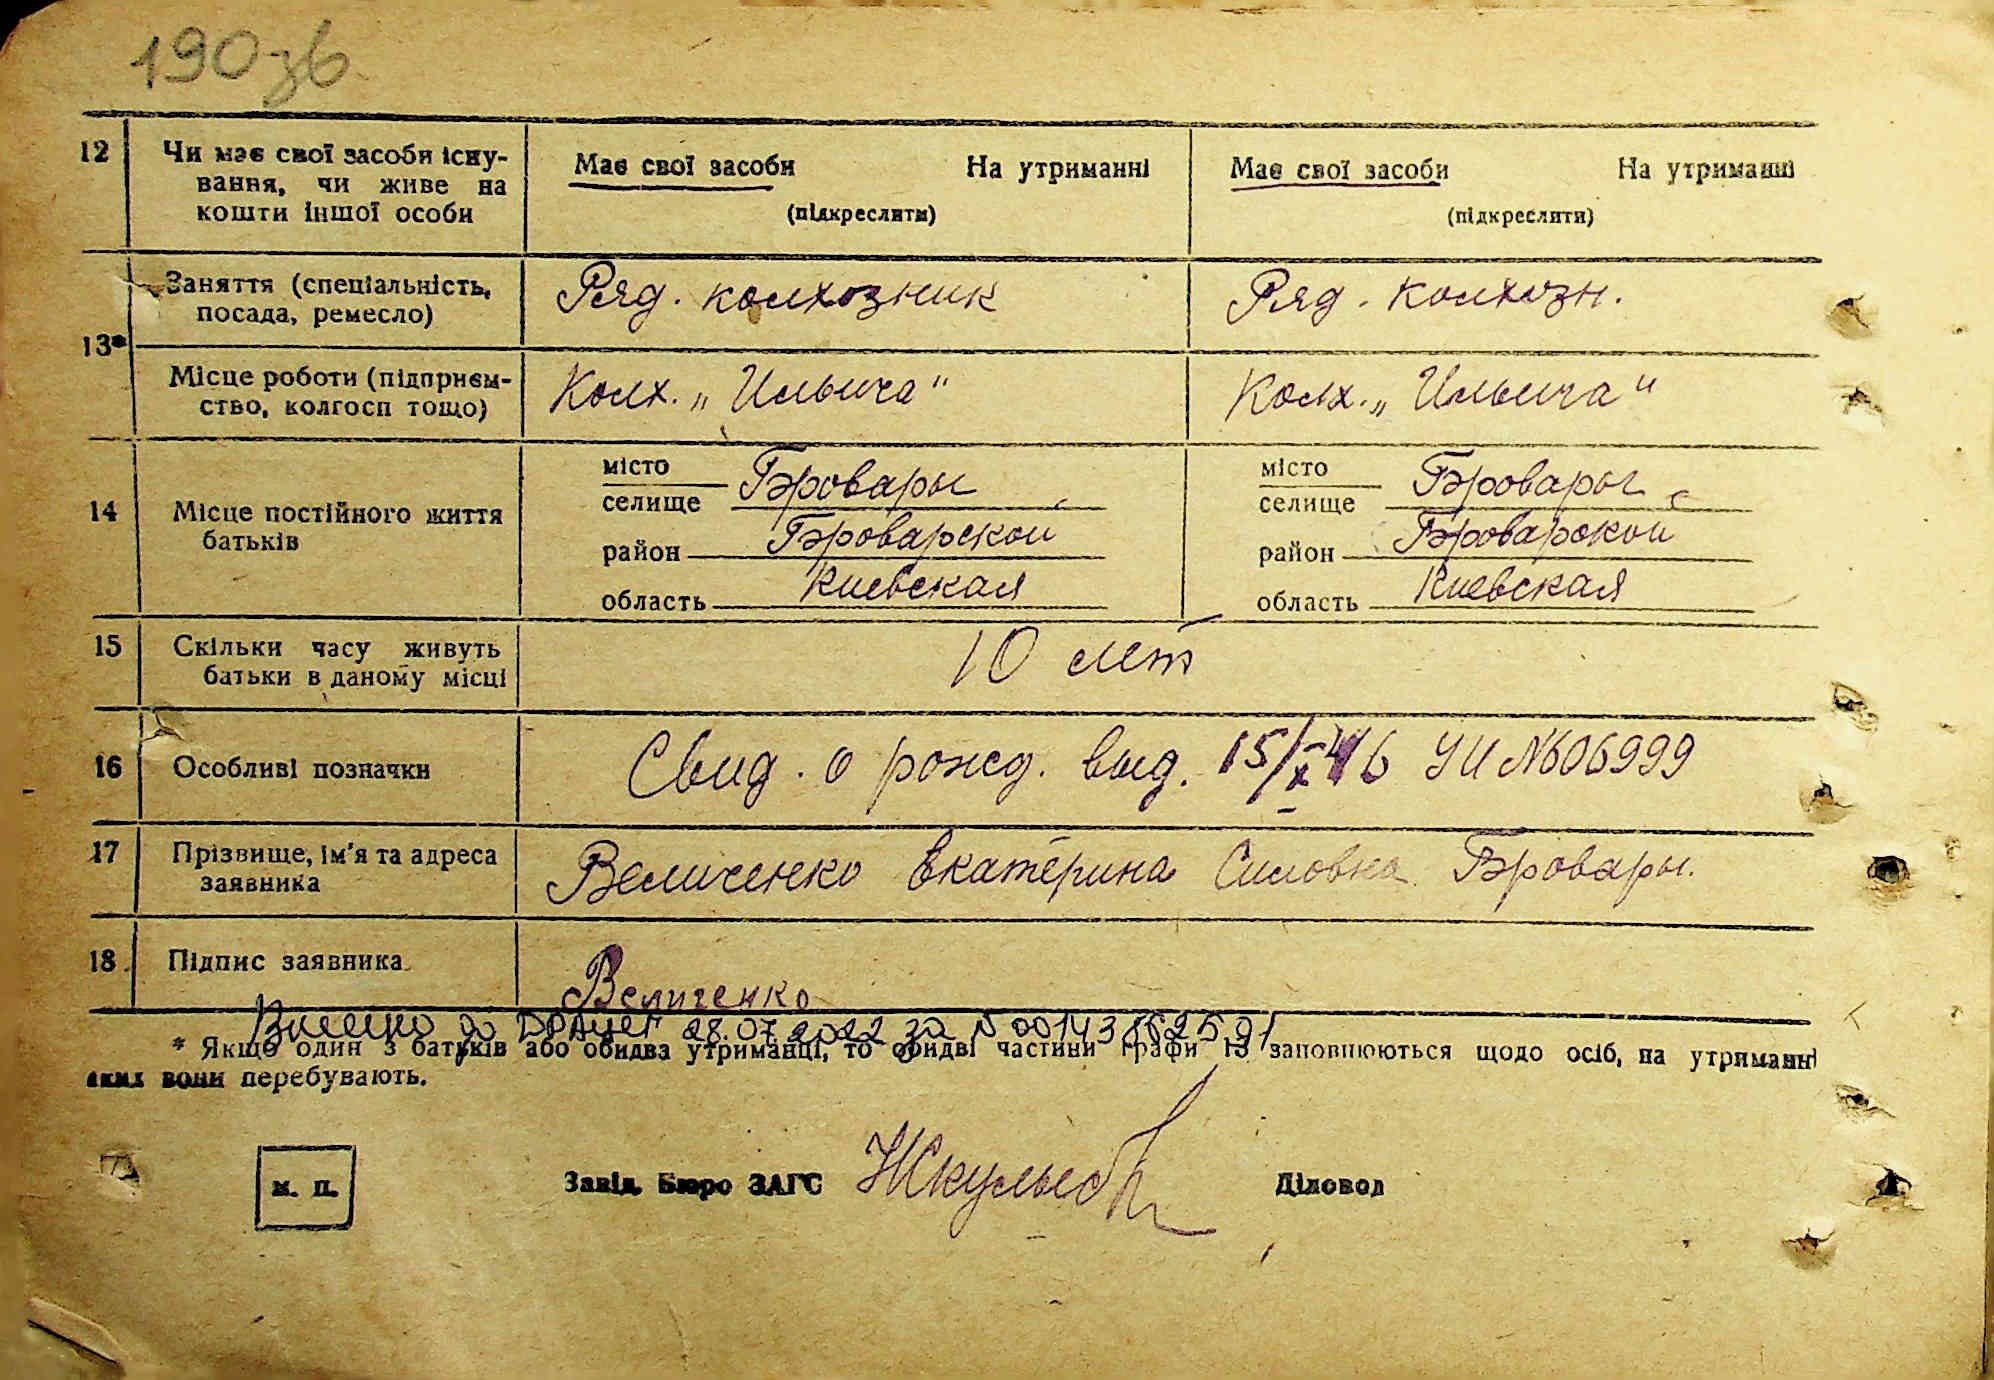 190 зв
12 Чи має свої засоби існу-
вання, чи живе на
кошти іншої особи
Має свої засоби На утриманні
(підкреслити)
Має свої засоби На утриманні
(підкреслити)
13*
Заняття (спеціальність,
посада, ремесло)
Ряд. колхозник
Ряд. колхозн.
Місце роботи (підприєм-
ство, колгосп тощо)
Колх. „Ильича"
Колх. „Ильича"
14 Місце постійного життя
батьків
місто
селище Бровары
район Броварской
область Киевская
місто
селище Бровары
район Броварской
область Киевская
15 Скільки часу живуть
батьки в даному місці
10 лет
16 Особливі позначки
Свид. о рожд. выд. 15/X-46 УИ №606999
17 Прізвище, ім'я та адреса
заявника
Величенко Екатерина Силовна Бровары.
18 Підпис заявника
Величенко
Внесено до ДРАЦСГ 28.07.2022 за № 00143862591
* Якщо один з батьків або обидва утриманці, то обидві частини графи 13 заповнюються щодо осіб, на утриманні
яких вони перебувають.
М. П.
Завід. Бюро ЗАГС
Діловод